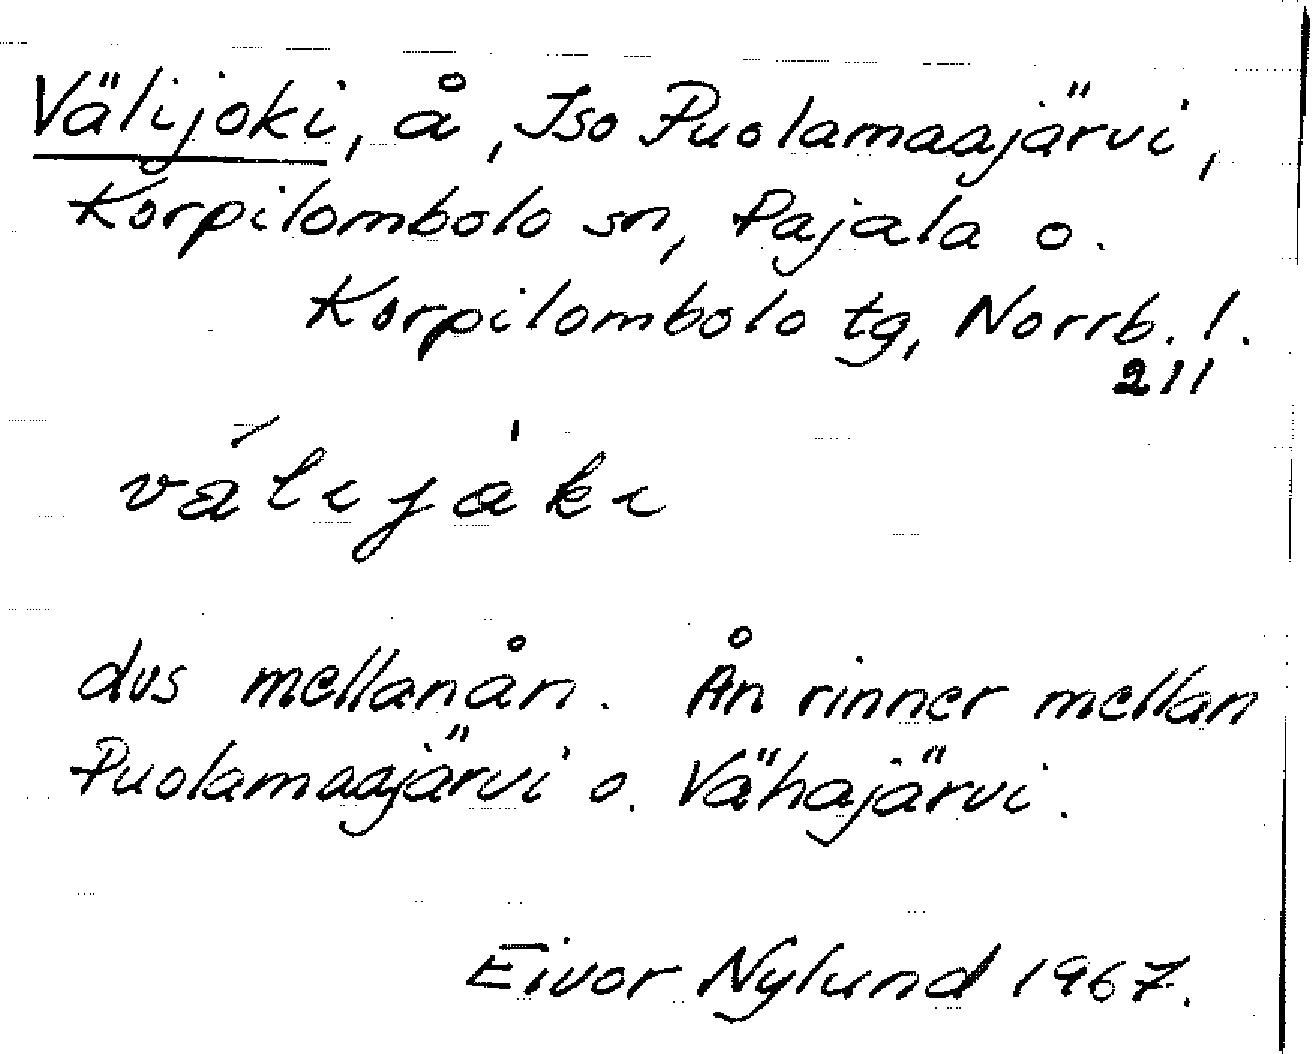 Välijoki, å, Iso Puolamaajärvi,
Korpilombolo sn, Pajala o.
Korpilombolo tg, Norrb. l.
211
väl&jåk&
dvs mellanån. Ån rinner mellan
Puolamaajärvi o. Vähajärvi.
Eivor Nylund 1967.